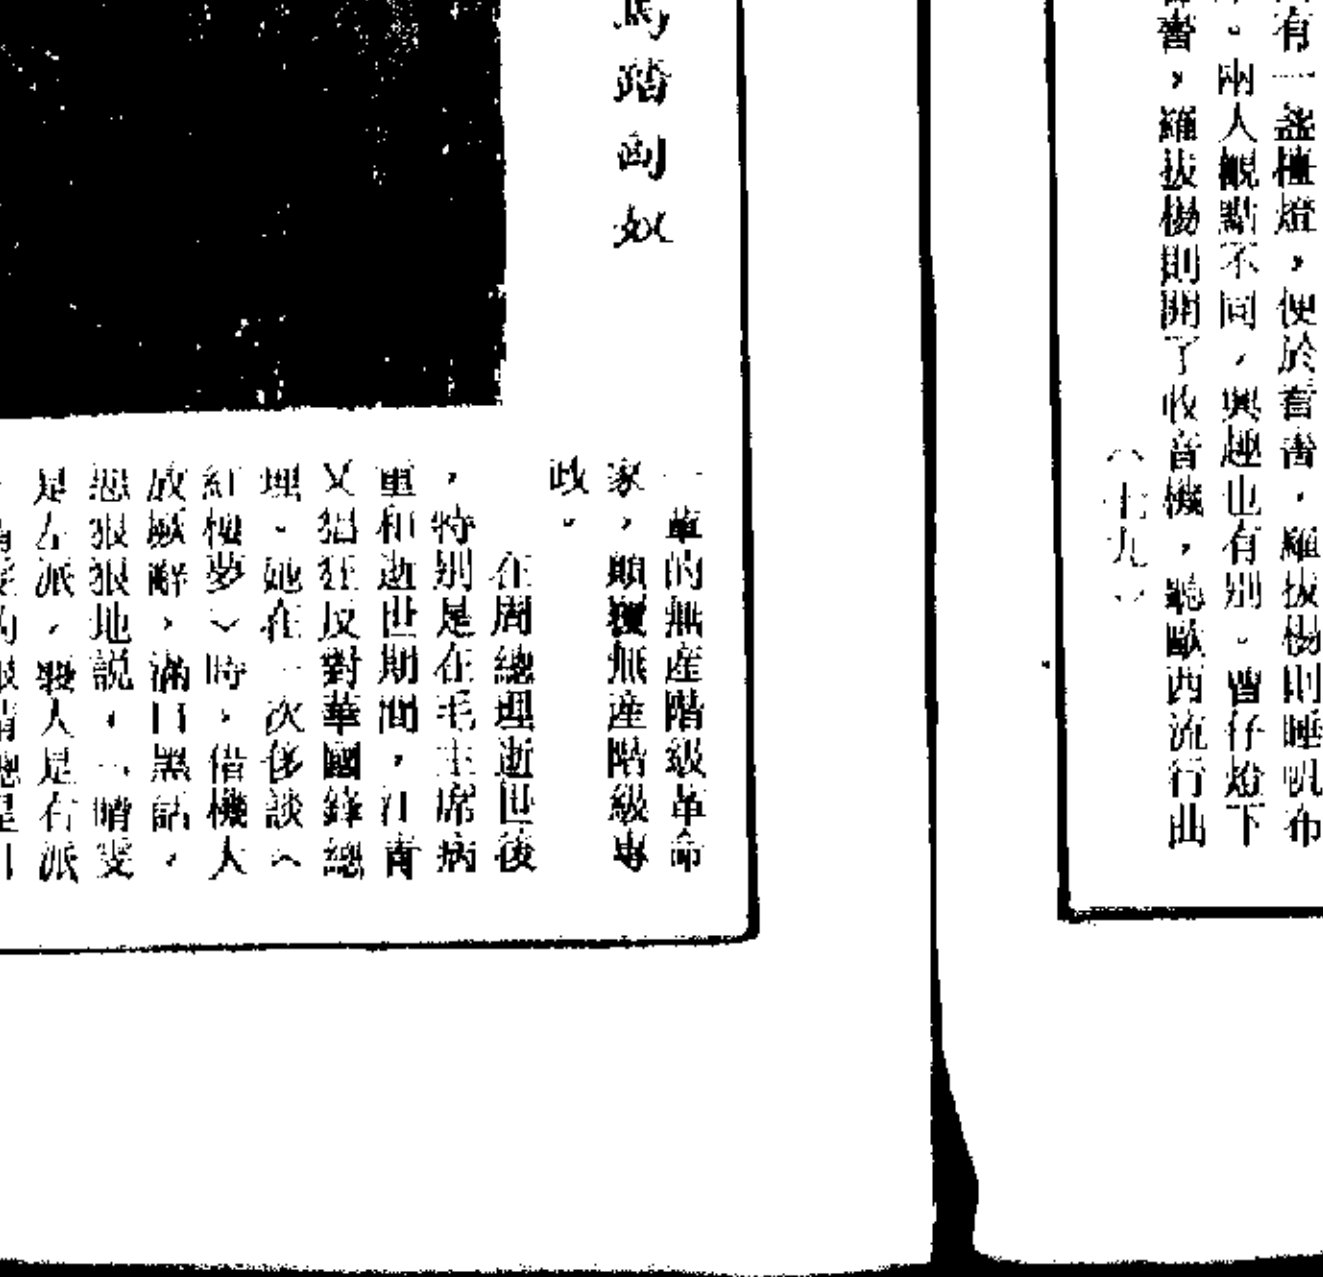 有一盞檯燈,便於看書,羅拔楊則睡帆布
。兩人觀點不同,興趣也有別。曾仔燈下
書,羅拔楊則開了收音機,聽歐西流行曲
(七九)
馬踏匈奴
一輩的無産階級革命
家,顛覆無産階級專
政。
在周總理逝世後
,特别是在毛主席病
重和逝世期間,江青
又猖狂反對華國鋒總
理。她在一次侈談〈
紅樓夢〉時,借機大
放厥辭,滿口黑話,
惡狠狠地説,「晴雯
是左派,襲人是右派